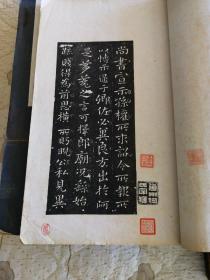 尚書宣示孫權所求詔令所報所
以博示逮于卿佐必冀良方出於阿
是芻蕘之言可擇郎廟況繇始以
疏賤得為前恩橫所盻睨公私見異